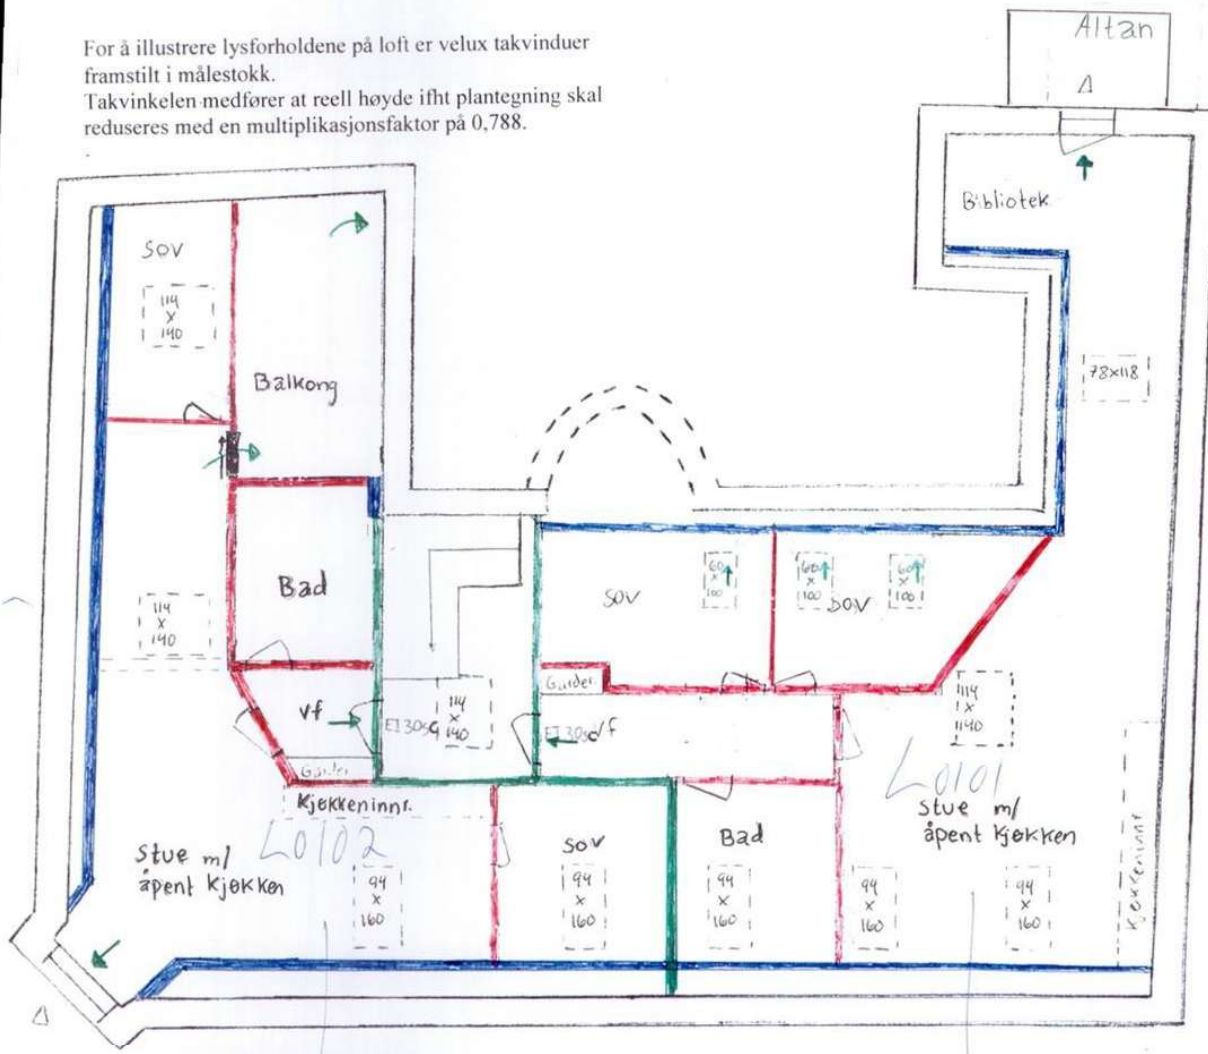 For å illustrere lysforholdene på loft er velux takvinduer
framstilt i målestokk.
Takvinkelen medfører at reell høyde ifht plantegning skal
reduseres med en multiplikasjonsfaktor på 0,788.
Altan
Bibliotek
Sov
114
x
140
Balkong
78x118
Bad
114
x
140
Sov
60
x
100
60
x
100
60
x
100
Sov
Garder.
vf
EI 30
114
x
140
EI 30
vf
114
x
1140
Garder
Kjøkkeninnr.
L0102
Stue m/
åpent kjøkken
94
x
160
Sov
94
x
160
Bad
94
x
160
L0101
Stue m/
åpent kjøkken
94
x
160
94
x
160
Kjøkkeninnr